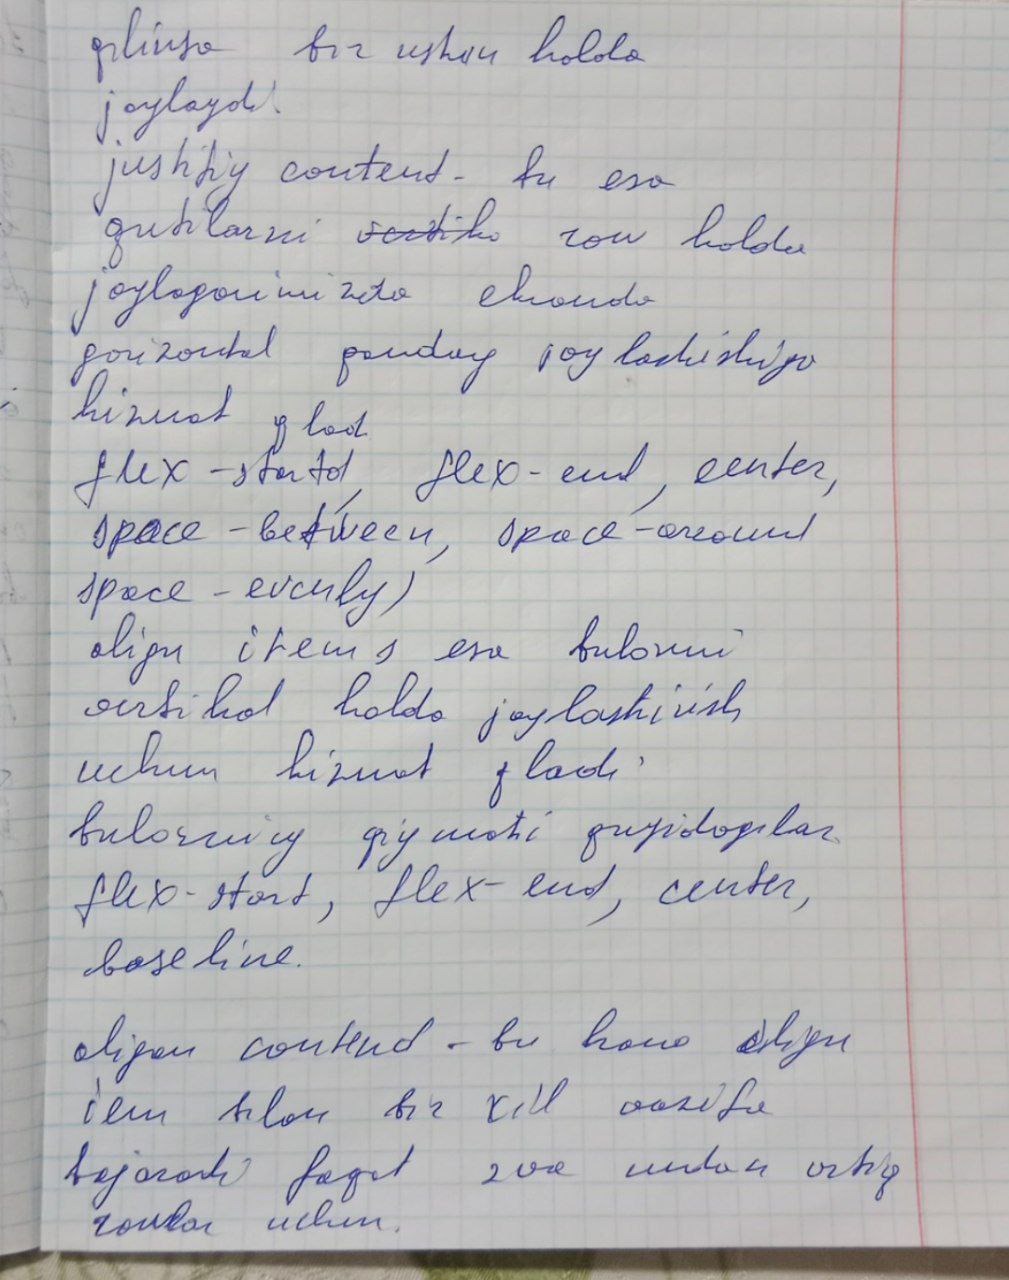 qilinsa bir ustun holda
joylaydi.
justifiy contend - bu esa
qutilarni vertika row holda
joylaganimizda ekanda
gorizontal qanday joylashishiga
hizmat qlad
flex-startd, flex-end, center,
space-between, space-around
space-evenly)
align items esa bularni
vertikal holda joylashtirish
uchun hizmat qladi
bularning qiymati quyidagilar
flex-start, flex-end, center,
baseline.
aligan contend - bu ham align
iem bilan bir xil vazifa
bajaradi faqat 2 va undan ortiq
rowlar uchun.